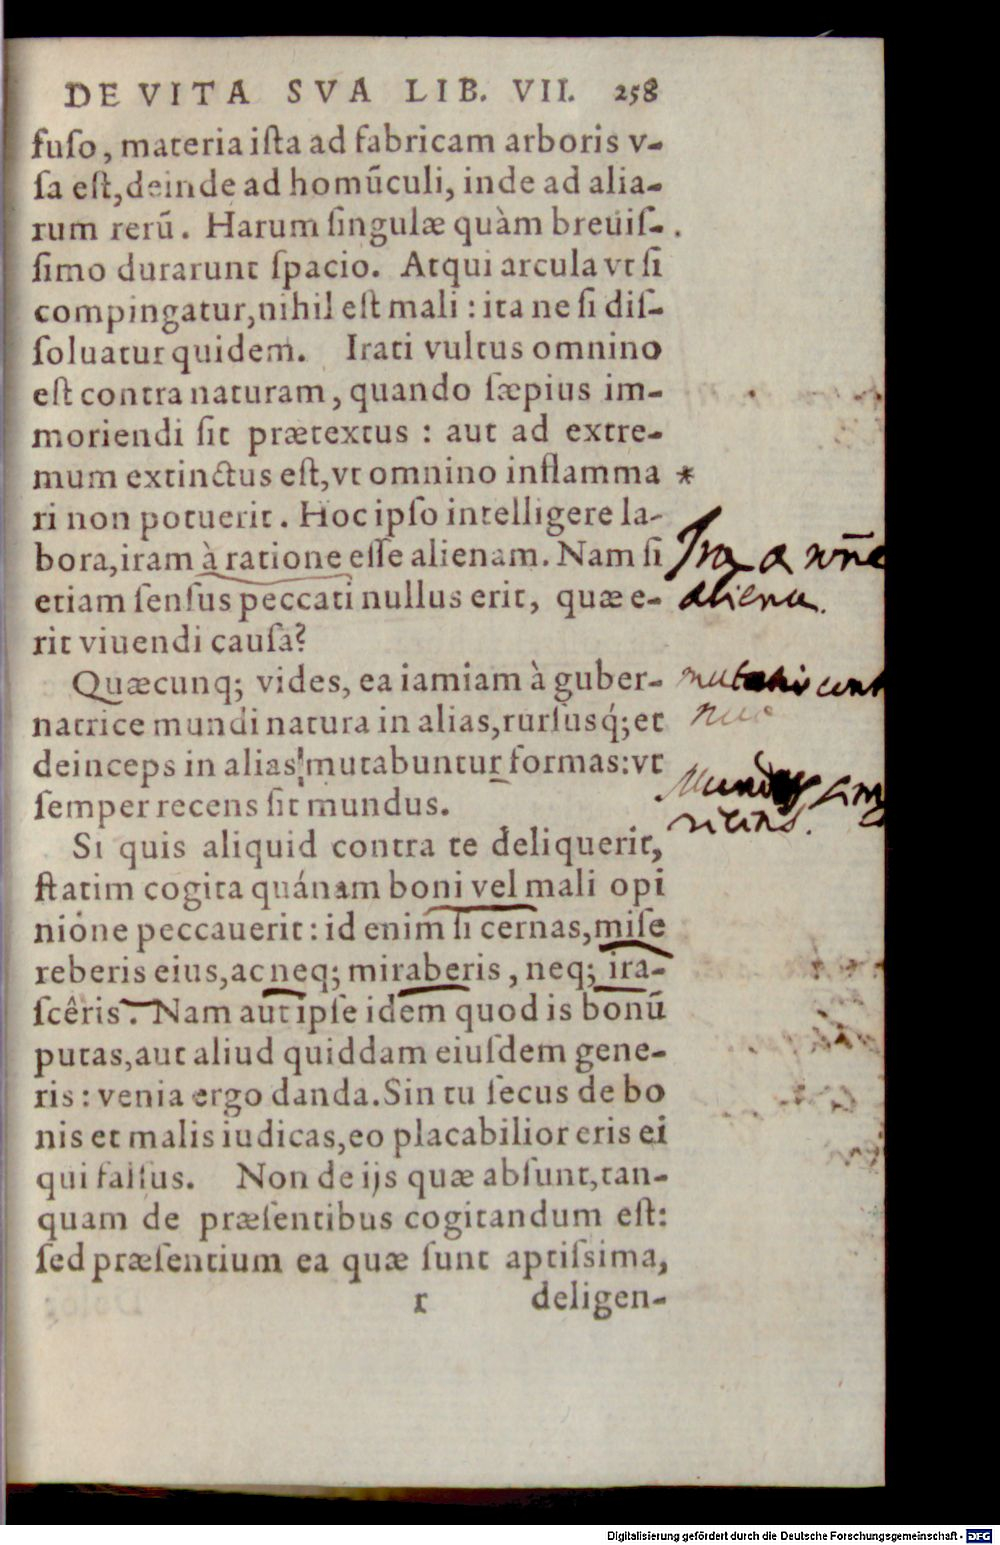 DE VITA SVA LIB. VII. 258
fuſo, materia iſta ad fabricam arboris v-
ſa eſt, deinde ad homūculi, inde ad alia-
rum rerū. Harum ſingulæ quàm breuiſ-
ſimo durarunt ſpacio. Atqui arcula vt ſi
compingatur, nihil eſt mali : ita ne ſi diſ-
ſoluatur quidem. Irati vultus omnino
eſt contra naturam, quando ſæpius im-
moriendi ſit prætextus : aut ad extre-
mum extinctus eſt, vt omnino inflamma *
ri non potuerit. Hoc ipſo intelligere la-
bora, iram à ratione eſſe alienam. Nam ſi
etiam ſenſus peccati nullus erit, quæ e-
rit viuendi cauſa?
Ira a rōne
aliena.
Quæcunq; vides, ea iamiam à guber-
natrice mundi natura in alias, rurſusq́; et
deinceps in alias mutabuntur formas: vt
ſemper recens ſit mundus.
mutatio cont
nua
Mundus
Si quis aliquid contra te deliquerit,
ſtatim cogita quánam boni vel mali opi
nióne peccauerit: id enim ſi cernas, miſe
reberis eius, ac neq; miraberis, neq; ira-
ſcêris. Nam aut ipſe idem quod is bonū
putas, aut aliud quiddam eiuſdem gene-
ris : venia ergo danda. Sin tu ſecus de bo
nis et malis iudicas, eo placabilior eris ei
qui falſus. Non de ijs quæ abſunt, tan-
quam de præſentibus cogitandum eſt:
ſed præſentium ea quæ ſunt aptiſsima,
r deligen-
Digitalisierung gefördert durch die Deutsche Forschungsgemeinschaft - DFG